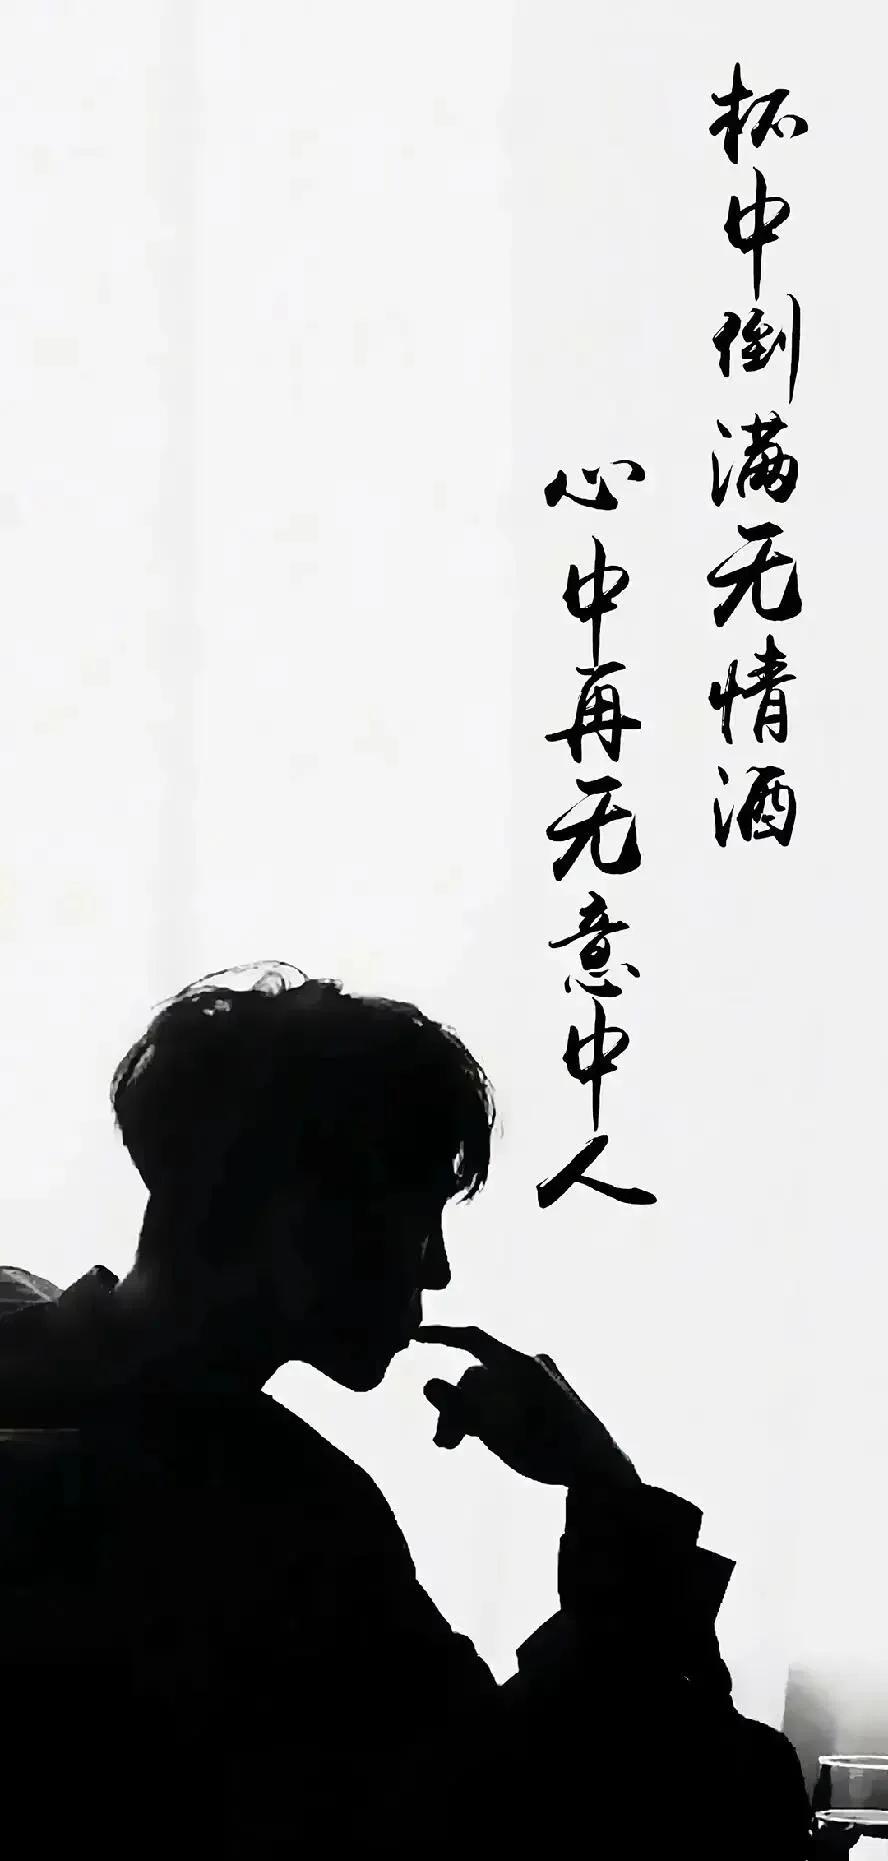 杯中倒满无情酒
心中再无意中人